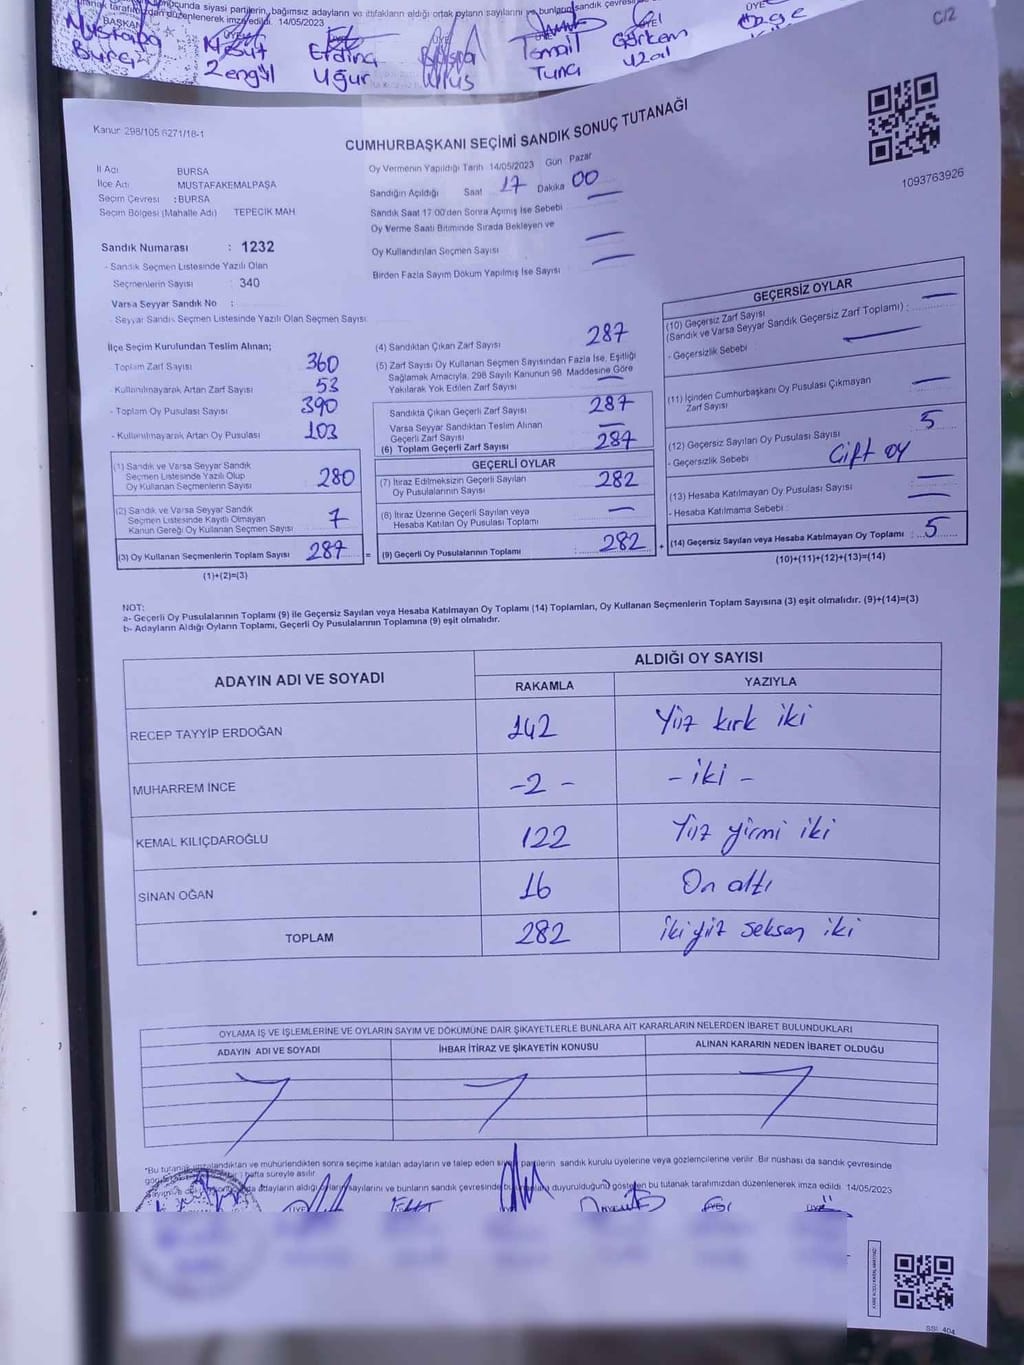 siyasi partilerin, bağımsız adayların ve ittifakların aldığı ortak oyların sayılarını ve bunların sandık
düzenlenerek imza edildi. 14/05/2023
BAŞKAN ÜYE ÜYE ÜYE ÜYE
Mustafa Mesut Erdinç İsmail Görkem Özge
Burç Zengil Uğur Ulus Tuna Uzal
C/2
Kanun: 298/105 6271/18-1
CUMHURBAŞKANI SEÇİMİ SANDIK SONUÇ TUTANAĞI
1093763926
İl Adı BURSA
İlçe Adı MUSTAFAKEMALPAŞA
Seçim Çevresi : BURSA
Seçim Bölgesi (Mahalle Adı) TEPECİK MAH
Oy Vermenin Yapıldığı Tarih 14/05/2023 Gün Pazar
Sandığın Açıldığı Saat 17 Dakika 00
Sandık Saat 17:00'den Sonra Açımış İse Sebebi —
Oy Verme Saati Bitiminde Sırada Bekleyen ve
Oy Kullandırılan Seçmen Sayısı —
Birden Fazla Sayım Döküm Yapılmış İse Sayısı —
Sandık Numarası : 1232
- Sandık Seçmen Listesinde Yazılı Olan
Seçmenlerin Sayısı : 340
Varsa Seyyar Sandık No :
- Seyyar Sandık Seçmen Listesinde Yazılı Olan Seçmen Sayısı
İlçe Seçim Kurulundan Teslim Alınan;
- Toplam Zarf Sayısı 360
- Kullanılmayarak Artan Zarf Sayısı 53
- Toplam Oy Pusulası Sayısı 390
- Kullanılmayarak Artan Oy Pusulası 103
(1) Sandık ve Varsa Seyyar Sandık
Seçmen Listesinde Yazılı Olup
Oy Kullanan Seçmenlerin Sayısı 280
(2) Sandık ve Varsa Seyyar Sandık
Seçmen Listesinde Kayıtlı Olmayan
Kanun Gereği Oy Kullanan Seçmen Sayısı 7
(3) Oy Kullanan Seçmenlerin Toplam Sayısı 287 =
(1)+(2)=(3)
(4) Sandıktan Çıkan Zarf Sayısı 287
(5) Zarf Sayısı Oy Kullanan Seçmen Sayısından Fazla İse, Eşitliği
Sağlamak Amacıyla, 298 Sayılı Kanunun 98. Maddesine Göre
Yakılarak Yok Edilen Zarf Sayısı —
Sandıkta Çıkan Geçerli Zarf Sayısı 287
Varsa Seyyar Sandıktan Teslim Alınan
Geçerli Zarf Sayısı —
(6) Toplam Geçerli Zarf Sayısı 287
GEÇERLİ OYLAR
(7) İtiraz Edilmeksizin Geçerli Sayılan
Oy Pusulalarının Sayısı 282
(8) İtiraz Üzerine Geçerli Sayılan veya
Hesaba Katılan Oy Pusulası Toplamı —
(9) Geçerli Oy Pusulalarının Toplamı : 282 +
GEÇERSİZ OYLAR
(10) Geçersiz Zarf Sayısı
(Sandık ve Varsa Seyyar Sandık Geçersiz Zarf Toplamı) : —
- Geçersizlik Sebebi —
(11) İçinden Cumhurbaşkanı Oy Pusulası Çıkmayan
Zarf Sayısı —
(12) Geçersiz Sayılan Oy Pusulası Sayısı 5
- Geçersizlik Sebebi Çift oy
(13) Hesaba Katılmayan Oy Pusulası Sayısı —
- Hesaba Katılmama Sebebi : —
(14) Geçersiz Sayılan veya Hesaba Katılmayan Oy Toplamı : 5
(10)+(11)+(12)+(13)=(14)
NOT:
a- Geçerli Oy Pusulalarının Toplamı (9) ile Geçersiz Sayılan veya Hesaba Katılmayan Oy Toplamı (14) Toplamları, Oy Kullanan Seçmenlerin Toplam Sayısına (3) eşit olmalıdır. (9)+(14)=(3)
b- Adayların Aldığı Oyların Toplamı, Geçerli Oy Pusulalarının Toplamına (9) eşit olmalıdır.
ADAYIN ADI VE SOYADI
ALDIĞI OY SAYISI
RAKAMLA YAZIYLA
RECEP TAYYİP ERDOĞAN 142 Yüz kırk iki
MUHARREM İNCE -2- -iki-
KEMAL KILIÇDAROĞLU 122 Yüz yirmi iki
SİNAN OĞAN 16 On altı
TOPLAM 282 iki yüz seksen iki
OYLAMA İŞ VE İŞLEMLERİNE VE OYLARIN SAYIM VE DÖKÜMÜNE DAİR ŞİKAYETLERLE BUNLARA AİT KARARLARIN NELERDEN İBARET BULUNDUKLARI
ADAYIN ADI VE SOYADI İHBAR İTİRAZ VE ŞİKAYETİN KONUSU ALINAN KARARIN NEDEN İBARET OLDUĞU
*Bu tutanak imzalandıktan ve mühürlendikten sonra seçime katılan adayların ve talep eden siyasi partilerin sandık kurulu üyelerine veya gözlemcilerine verilir. Bir nüshası da sandık çevresinde
hafta süreyle asılır.
adayların aldığı sayılarını ve bunların sandık çevresinde duyurulduğunu gösteren bu tutanak tarafımızdan düzenlenerek imza edildi. 14/05/2023
ÜYE ÜYE ÜYE
SSİ 404